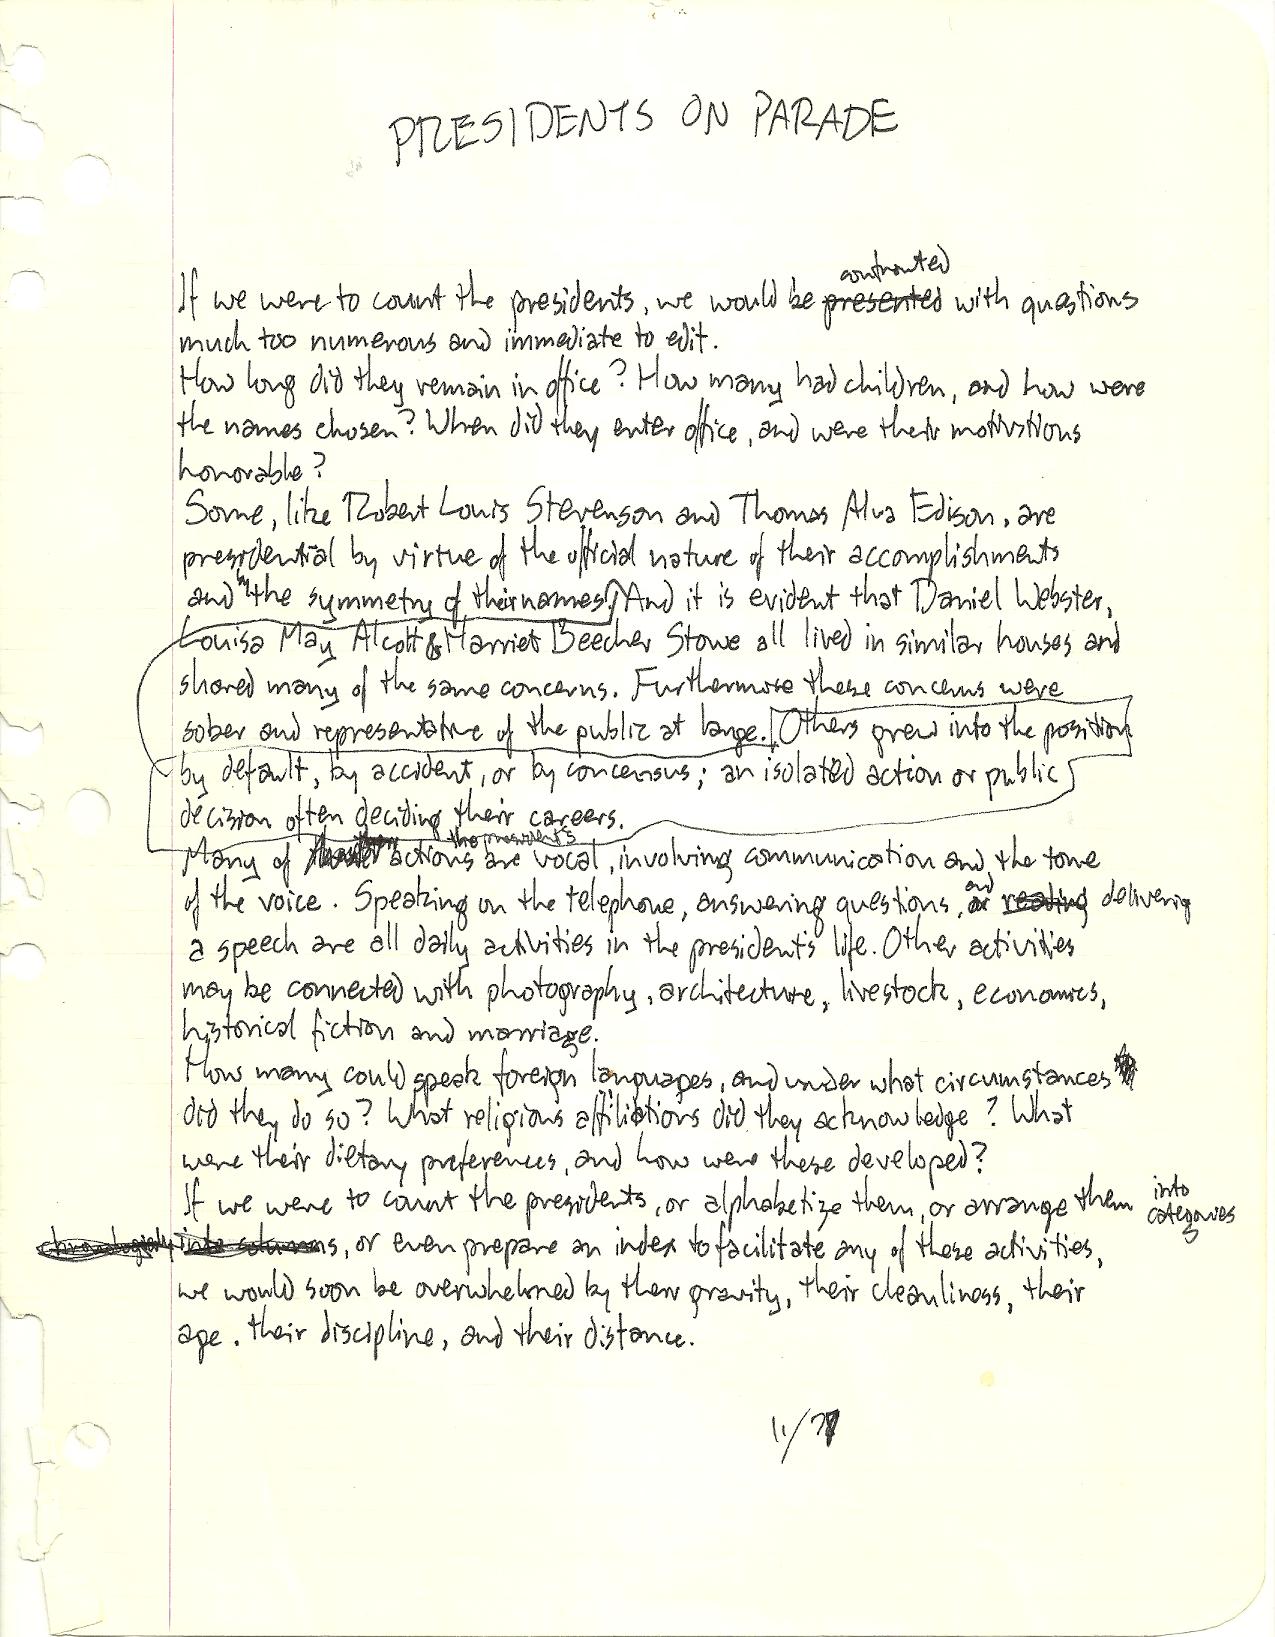 PRESIDENTS ON PARADE
confronted
If we were to count the presidents, we would be presented with questions
much too numerous and immediate to edit.
How long did they remain in office? How many had children, and how were
the names chosen? When did they enter office, and were their motivations
honorable?
Some, like Robert Louis Stevenson and Thomas Alva Edison, are
presidential by virtue of the official nature of their accomplishments
and in the symmetry of their names. And it is evident that Daniel Webster,
Louisa May Alcott & Harriet Beecher Stowe all lived in similar houses and
shared many of the same concerns. Furthermore these concerns were
sober and representative of the public at large. Others grew into the position
by default, by accident, or by concensus; an isolated action or public
decision often deciding their careers.
the president's
Many of actions are vocal, involving communication and the tone
and
of the voice. Speaking on the telephone, answering questions, or reading delivering
a speech are all daily activities in the president's life. Other activities
may be connected with photography, architecture, livestock, economics,
historical fiction and marriage.
How many could speak foreign languages, and under what circumstances
did they do so? What religious affiliations did they acknowledge? What
were their dietary preferences, and how were these developed?
If we were to count the presidents, or alphabetize them, or arrange them into
categories
chronologically into columns, or even prepare an index to facilitate any of these activities,
we would soon be overwhelmed by their gravity, their cleanliness, their
age, their discipline, and their distance.